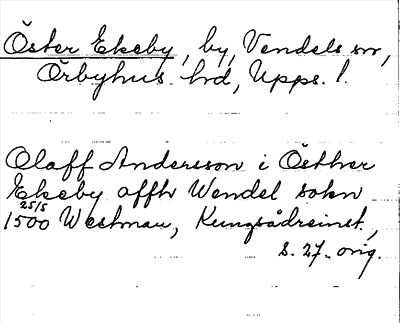 Öster Ekeby, by, Vendels sn,
Örbyhus hd, Upps. l.
Olaff Andersson i Östher
Ekeby affth Wendel sokn
25/5
1500 Westman, Kungsådreinst.,
s. 27. orig.